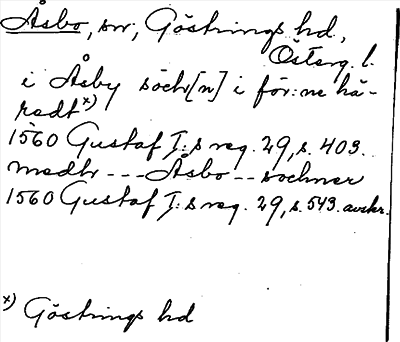 Åsbo, sn, Göstrings hd,
Österg. l.
i Åsby sochn[n] i för:ne hä-
redt x)
1560 Gustaf I:s reg. 29, s. 403.
medh --- Åsbo -- sochner
1560 Gustaf I:s reg. 29, s. 543. avskr.
x) Göstrings hd